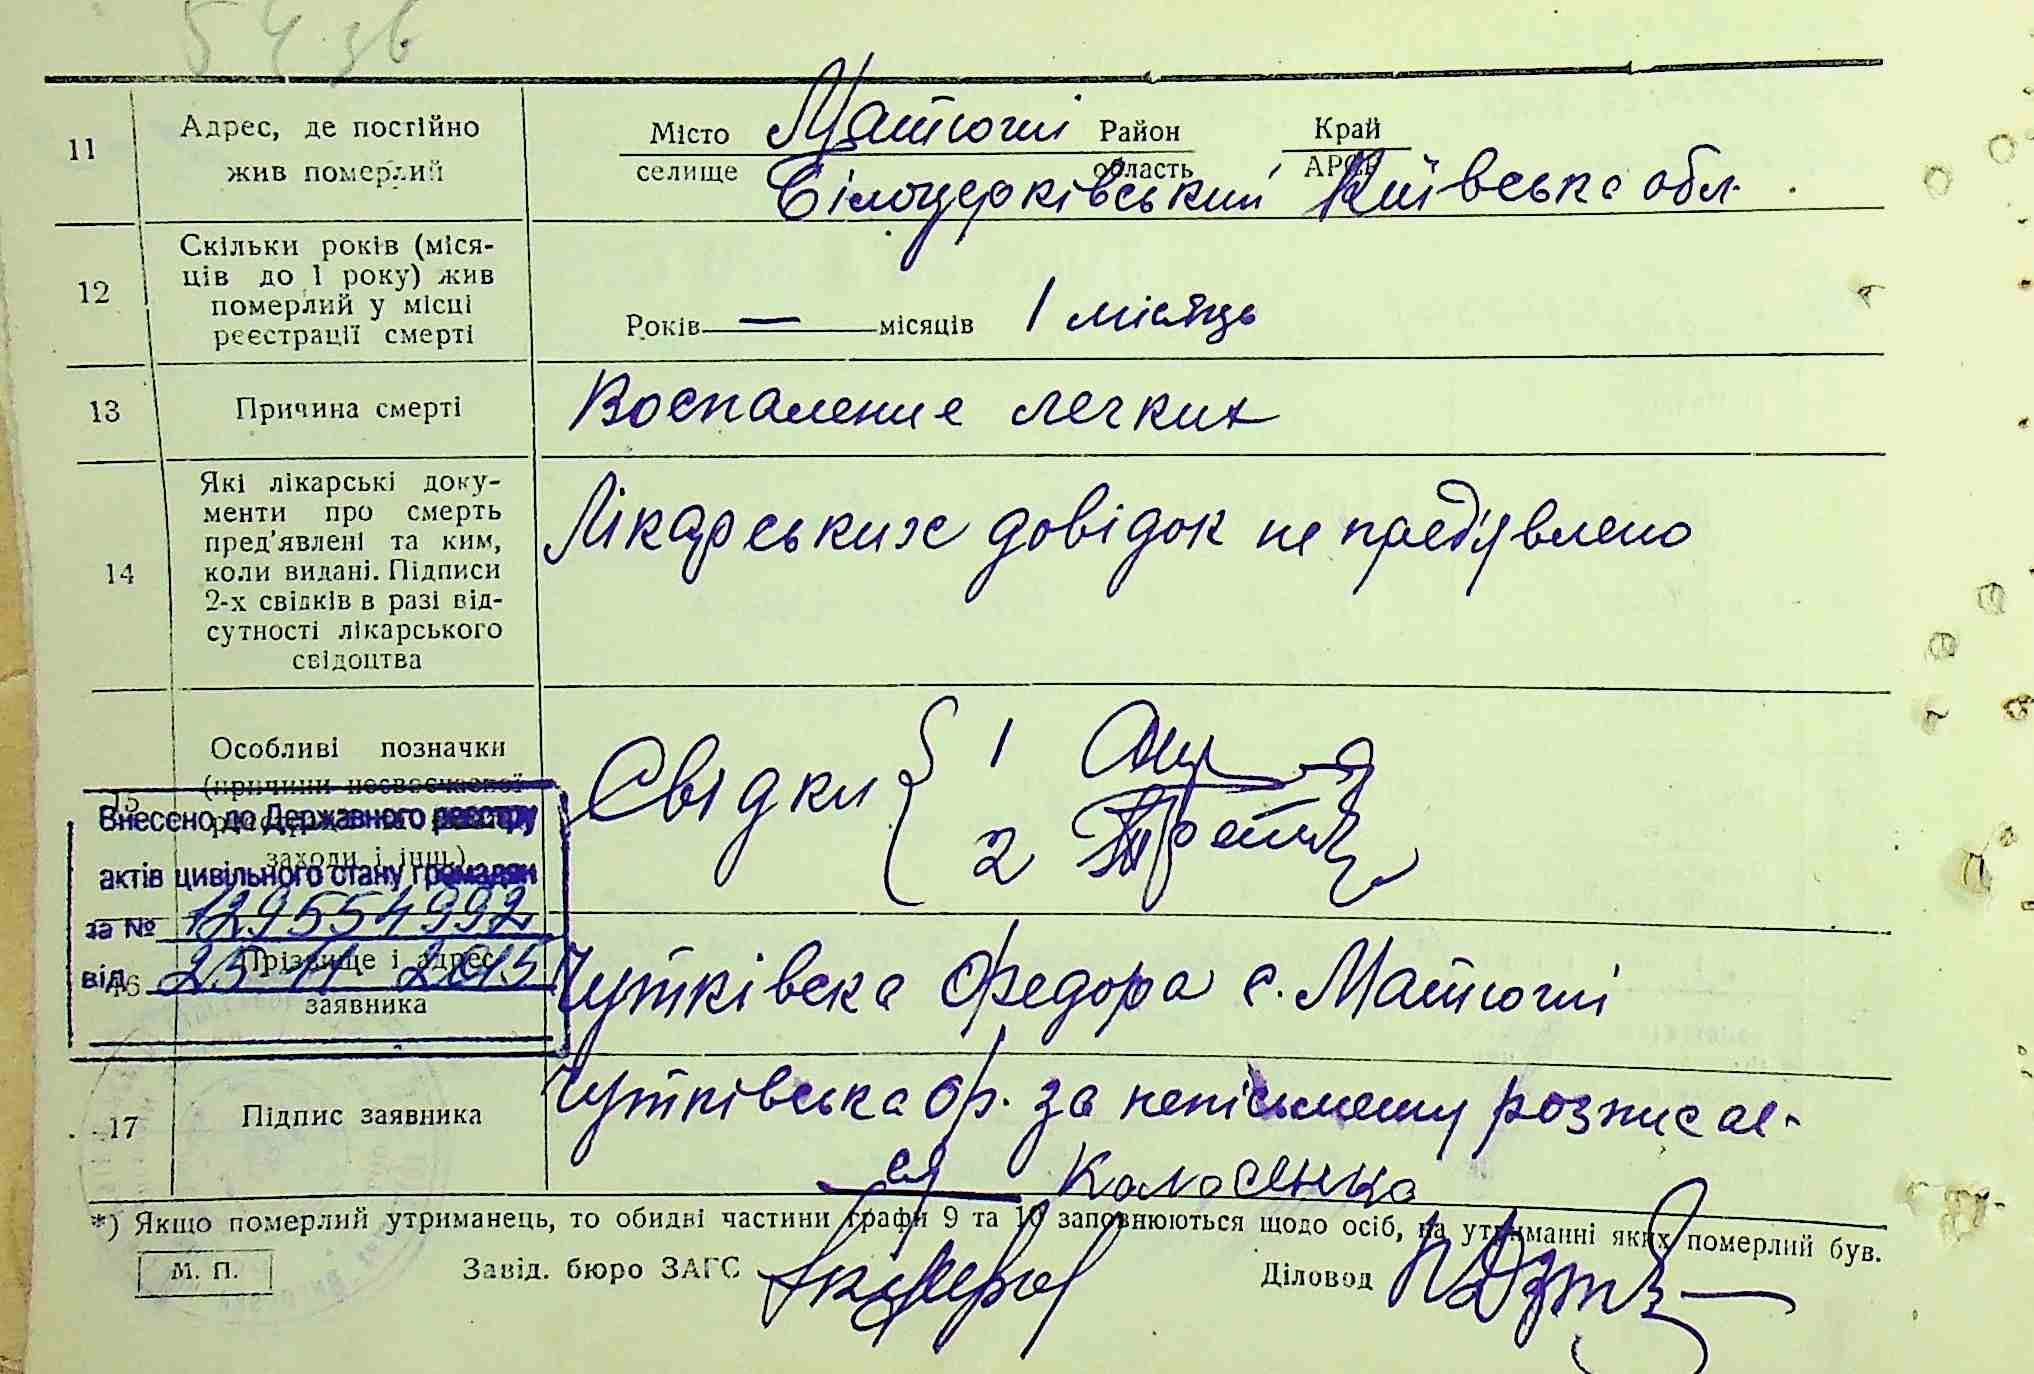 54 зв
11
Адрес, де постійно
жив померлий
Місто Матюші Район Край
селище область АРСР
Білоцерківський Київська обл.
12
Скільки років (міся-
ців до 1 року) жив
померлий у місці
реєстрації смерті
Років — місяців 1 місяць
13
Причина смерті
Воспаление легких
14
Які лікарські доку-
менти про смерть
пред'явлені та ким,
коли видані. Підписи
2-х свідків в разі від-
сутності лікарського
свідоцтва
Лікарських довідок не пред'явлено
15
Особливі позначки
(причини несвоєчасної
заходи і інш.)
Свідки 1
2
Внесено до Державного реєстру
актів цивільного стану громадян
за № 129554992
від 25 11 2015
16
Прізвище і адрес
заявника
Чутківска Федора с. Матюші
17
Підпис заявника
Чутківська Ф. за неписьмену розписал-
ся Колосенко
*) Якщо померлий утриманець, то обидві частини графи 9 та 10 заповнюються щодо осіб, на утриманні яких померлий був.
М. П.
Завід. бюро ЗАГС
Діловод